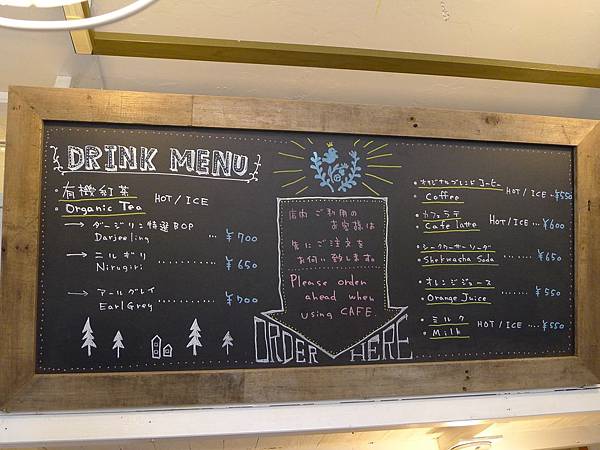 DRINK MENU
・有機紅茶 HOT / ICE
・Organic Tea
→ ダージリン特選BOP
Darjeeling ... ¥700
→ ニルギリ
Nirugiri ......... ¥650
→ アールグレイ
Earl Grey ........... ¥700
店内ご利用の
お客様は
先にご注文を
お伺い致します。
Please order
ahead when
using CAFE.
ORDER HERE
・オリジナルブレンドコーヒー
Coffee HOT / ICE ... ¥550
・カフェラテ
Cafe latte HOT / ICE ... ¥600
・シークワーサーソーダ
Shekwasha Soda ..... ¥650
・オレンジジュース
Orange Juice ........ ¥550
・ミルク
Milk HOT / ICE .... ¥550